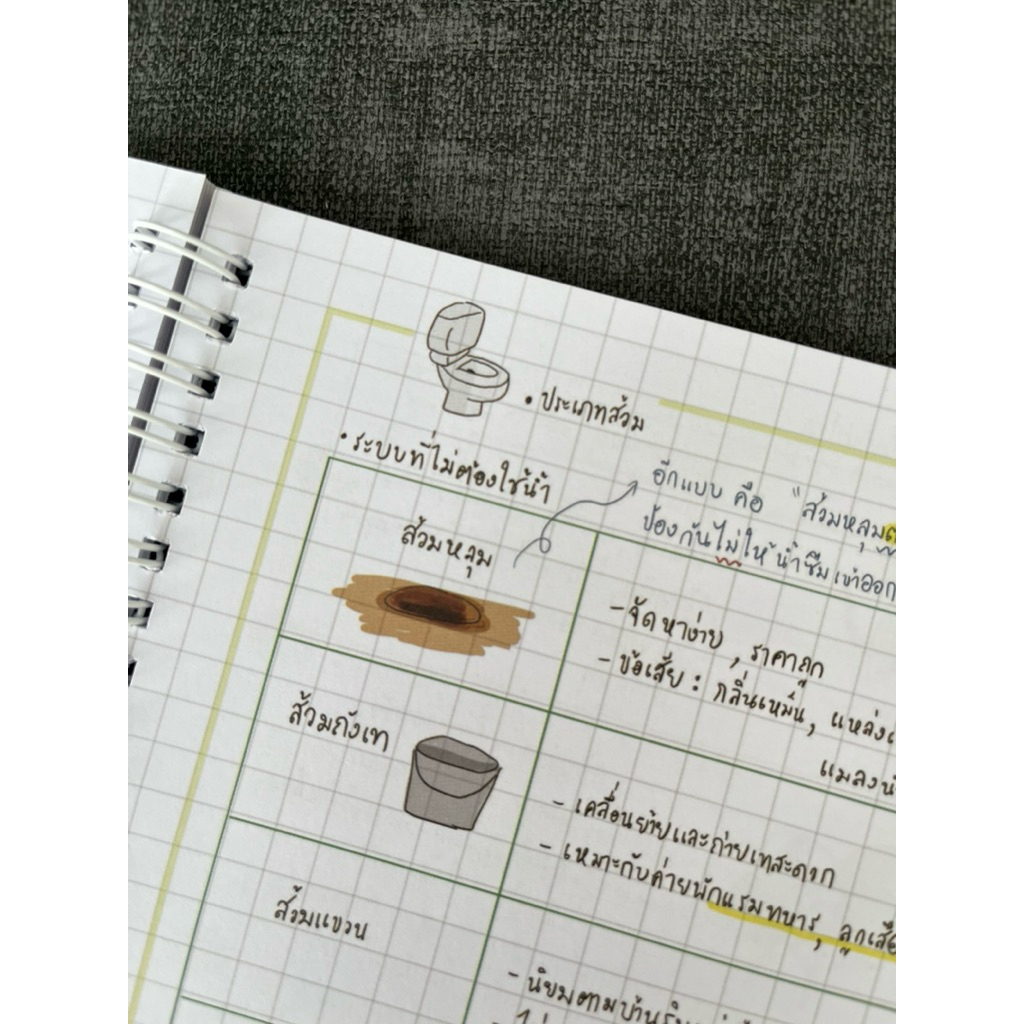 • ประเภทส้วม
• ระบบที่ไม่ต้องใช้น้ำ
อีกแบบ คือ "ส้วมหลุม
ป้องกันไม่ให้น้ำซึมเข้าออก
ส้วมหลุม
- จัดหาง่าย , ราคาถูก
- ข้อเสีย : กลิ่นเหม็น, แหล่ง
แมลงนำ
ส้วมถังเท
- เคลื่อนย้ายและถ่ายเทสะดวก
- เหมาะกับค่ายพักแรมทหาร, ลูกเสือ
ส้วมแขวน
- นิยมตามบ้านริม